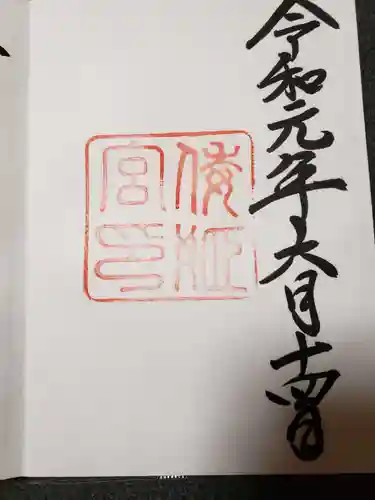 令和元年六月十四日
倭姫
宮印